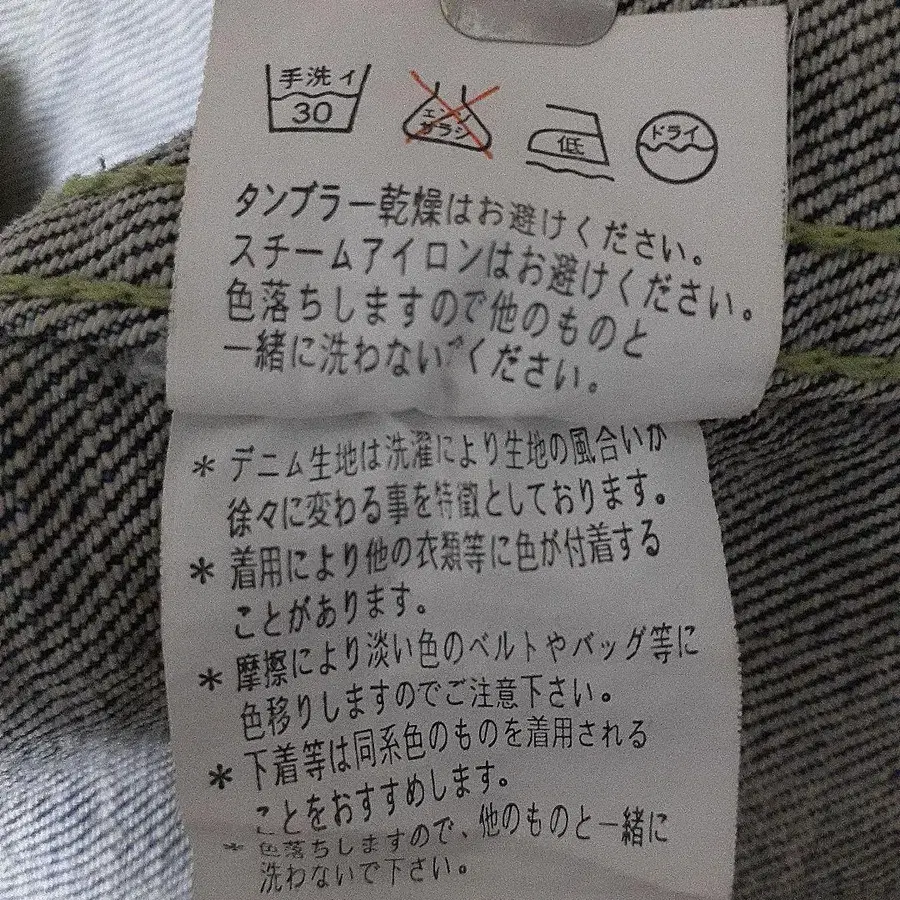 手洗イ
30
エンソ
サラシ
低
ドライ
タンブラー乾燥はお避けください。
スチームアイロンはお避けください。
色落ちしますので他のものと
一緒に洗わないでください。
* デニム生地は洗濯により生地の風合いが
徐々に変わる事を特徴としております。
* 着用により他の衣類等に色が付着する
ことがあります。
* 摩擦により淡い色のベルトやバッグ等に
色移りしますのでご注意下さい。
* 下着等は同系色のものを着用される
ことをおすすめします。
* 色落ちしますので、他のものと一緒に
洗わないで下さい。